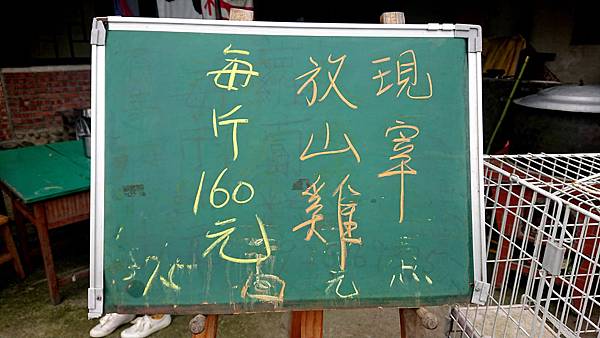 現宰
放山雞
每斤
160元